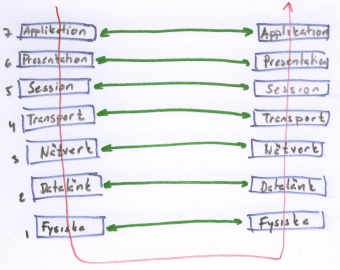 7 Applikation Applikation
6 Presentation Presentation
5 Session Session
4 Transport Transport
3 Nätverk Nätverk
2 Datalänk Datalänk
1 Fysiska Fysiska